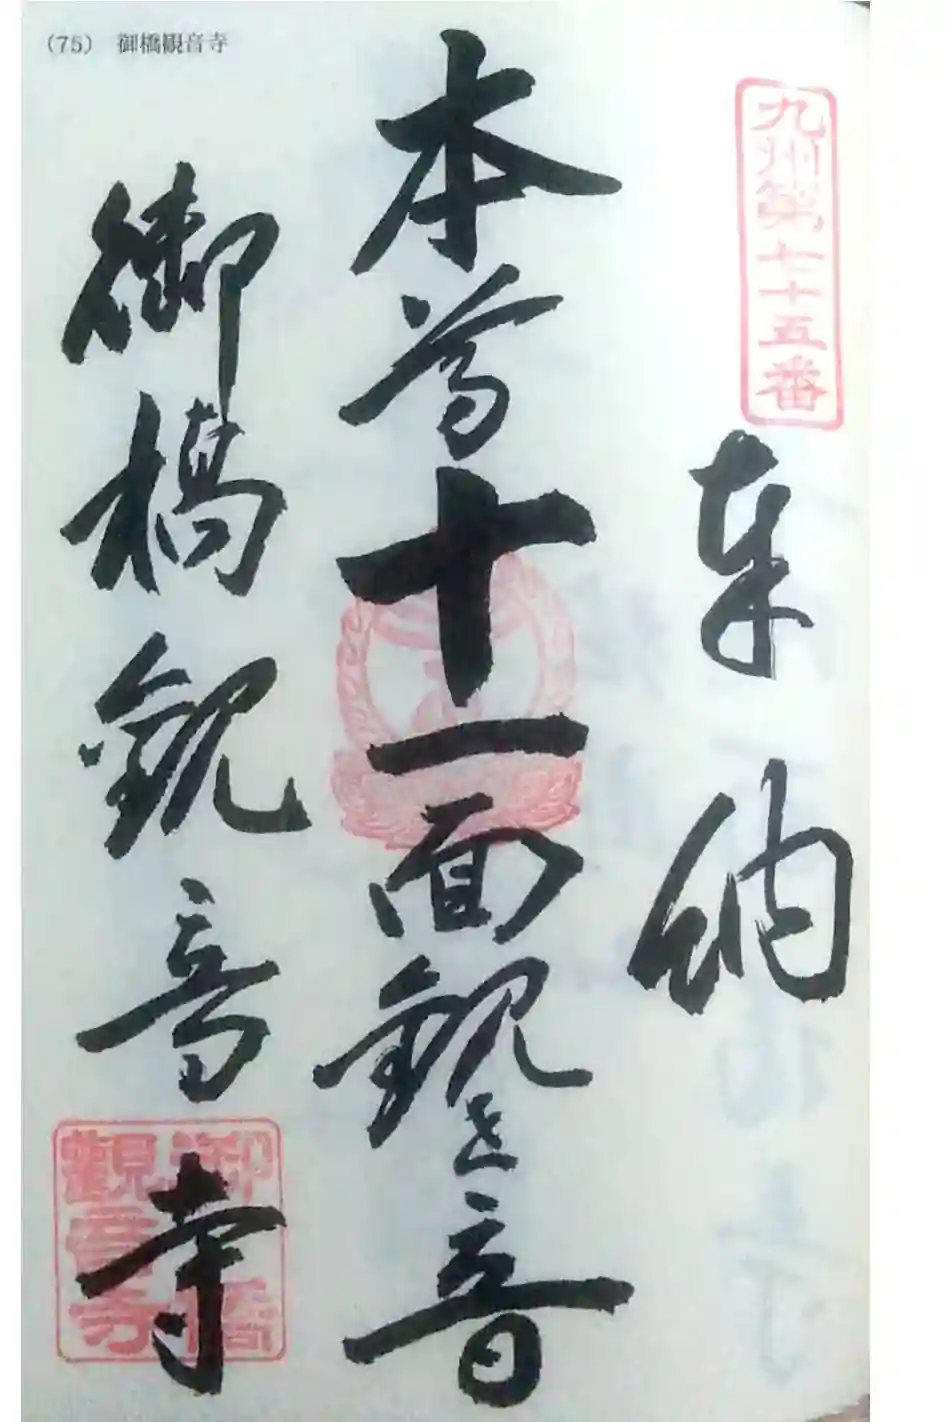 (75) 御橋観音寺
九州第七十五番
奉納
本尊十一面観世音
御橋観音寺
御橋觀音寺